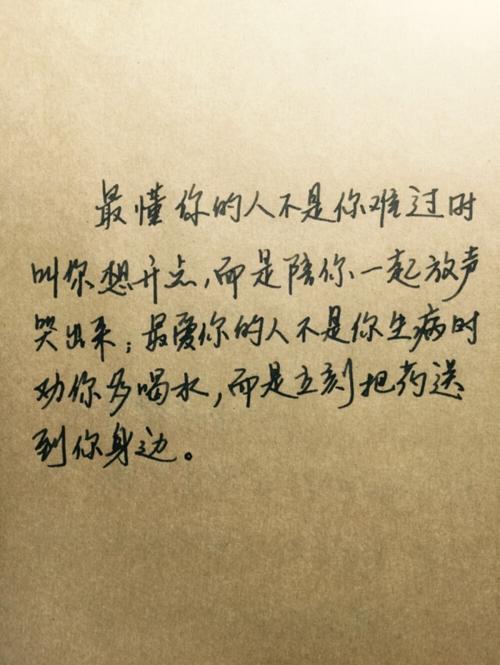 最懂你的人不是你难过时
叫你想开点，而是陪你一起放声
哭出来；最爱你的人不是你生病时
劝你多喝水，而是立刻把药送
到你身边。